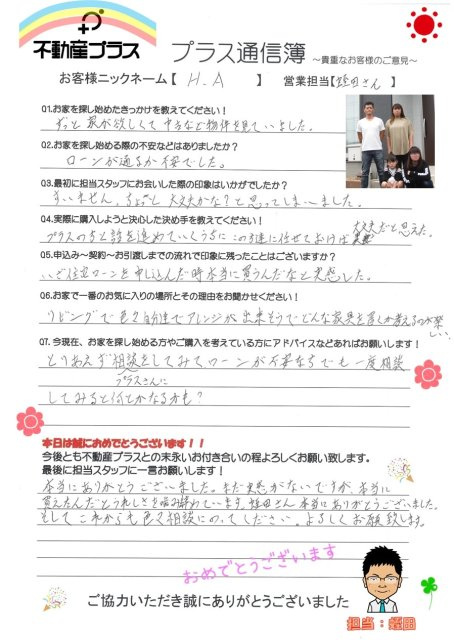 不動産プラス
プラス通信簿 ～貴重なお客様のご意見～
お客様ニックネーム【 H.A 】 営業担当【蛭田さん】
Q1.お家を探し始めたきっかけを教えてください！
ずっと家が欲しくて中古など物件を見ていました。
Q2.お家を探し始める際の不安などはありましたか？
ローンが通るか不安でした。
Q3.最初に担当スタッフにお会いした際の印象はいかがでしたか？
すいません、ちょっと大丈夫かな？と思ってしまいました。
Q4.実際に購入しようと決心した決め手を教えてください！
プラスの方と話を進めていくうちにこの人達に任せておけば大丈夫だと思えた。
Q5.申込み～契約～お引渡しまでの流れで印象に残ったことはございますか？
住宅ローンを申し込んだ時本当に買うんだなと実感した。
Q6.お家で一番のお気に入りの場所とその理由をお聞かせください！
リビングで色々自分達でアレンジが出来そうでどんな家具を置くか考えるのが楽しい。
Q7.今現在、お家を探し始める方やご購入を考えている方にアドバイスなどあればお願いします！
とりあえず相談をしてみて、ローンが不安な方でも一度相談
プラスさんに
してみると何とかなるかも？
本日は誠におめでとうございます！！
今後とも不動産プラスとの末永いお付き合いの程よろしくお願い致します。
最後に担当スタッフに一言お願いします！
本当にありがとうございました。まだ実感がないですが、本当に
買えたんだとうれしさを噛み締めています。蛭田さん本当にありがとうございました。
そしてこれからも色々相談にのってください。よろしくお願い致します。
おめでとうございます
ご協力いただき誠にありがとうございました
担当：蛭田